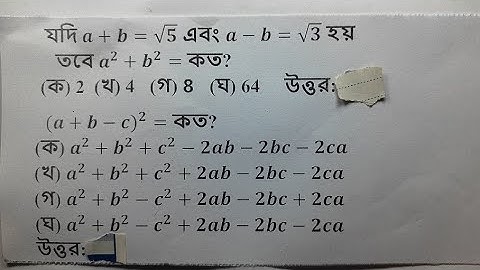 যদি a + b = √5 এবং a − b = √3 হয়
তবে a² + b² = কত?
(ক) 2 (খ) 4 (গ) 8 (ঘ) 64 উত্তর:
(a + b − c)² = কত?
(ক) a² + b² + c² − 2ab − 2bc − 2ca
(খ) a² + b² + c² + 2ab − 2bc − 2ca
(গ) a² + b² − c² + 2ab − 2bc + 2ca
(ঘ) a² + b² − c² + 2ab − 2bc − 2ca
উত্তর: